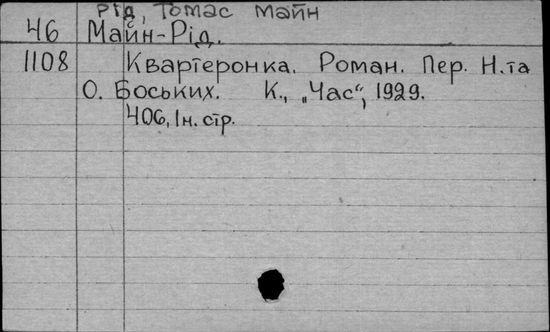 Рід, Томас Майн
46 Майн-Рід.
1108 Квартеронка. Роман. Пер. Н. та
О. Боських. К., „Час“, 1929.
406, Ін. стр.